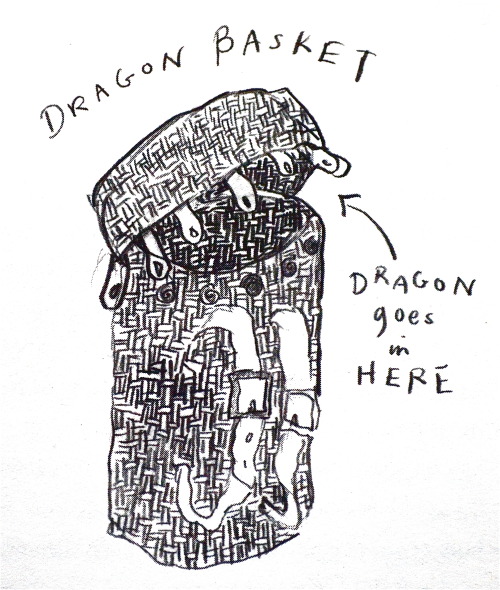 DRAGON BASKET
DRAGON
goes
in
HERE